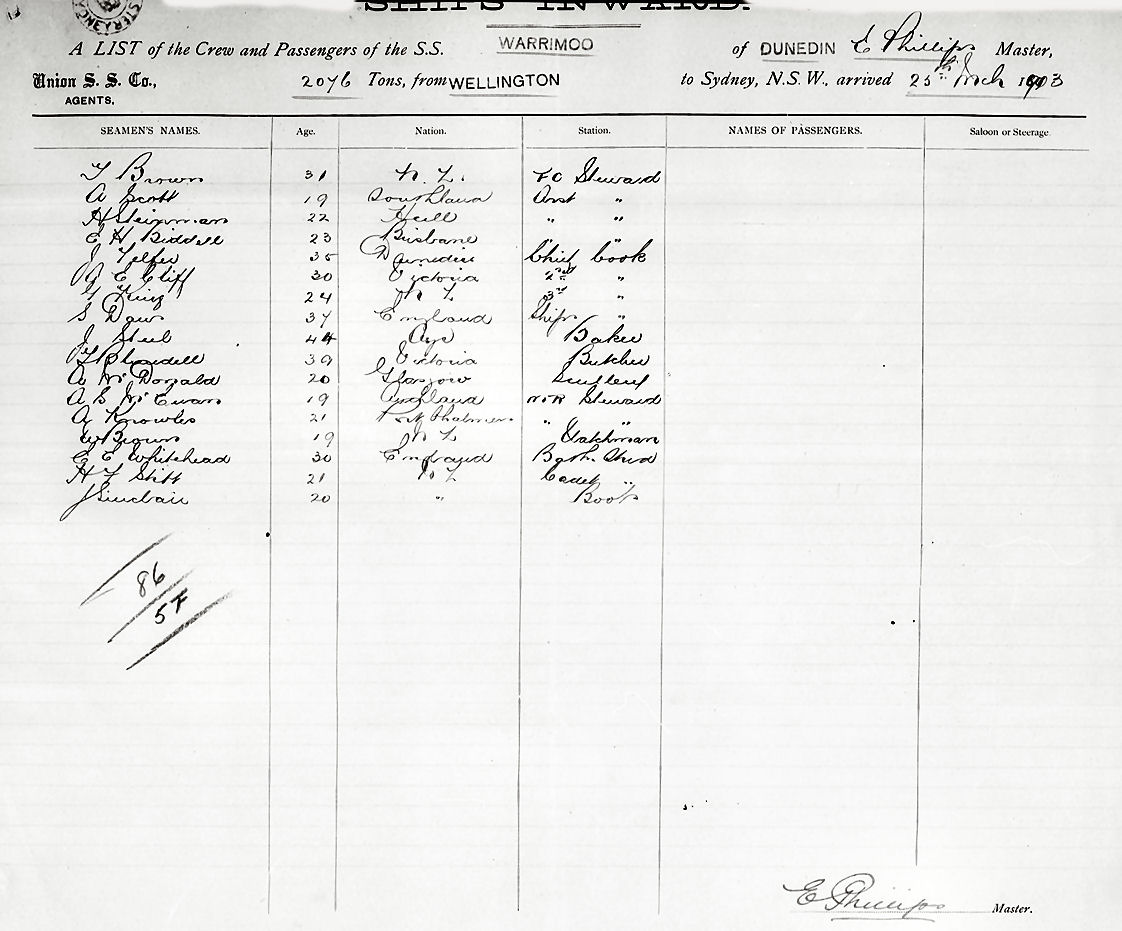 SHIPS INWARD.
A LIST of the Crew and Passengers of the S.S. WARRIMOO of DUNEDIN E Phillips Master,
Union S. S. Co., AGENTS, 2076 Tons, from WELLINGTON to Sydney, N.S.W., arrived 25th Mch 1903
SEAMEN'S NAMES. Age. Nation. Station. NAMES OF PASSENGERS. Saloon or Steerage.
Brown 31 N. Z. Steward
A Scott 19 Southland Asst "
H Steinman 22 Hull " "
E H Biddell 23 Brisbane " "
J Telfer 35 Dunedin Chief Cook
A E Cliff 30 Victoria 2nd "
King 24 N Z 3rd "
S Daw 37 England Ships "
J Steel 44 Ayr Baker
Blundell 39 Victoria Butcher
A McDonald 20 Glasgow
A S McEwan 19 Auckland Steward
A Knowles 21 Port Chalmers " "
W Brown 19 N Z Watchman
E E Whitehead 30 England Bath Stwd
H F Stitt 21 N Z Cadet "
J Sinclair 20 " Boots
86
57
E Phillips Master.